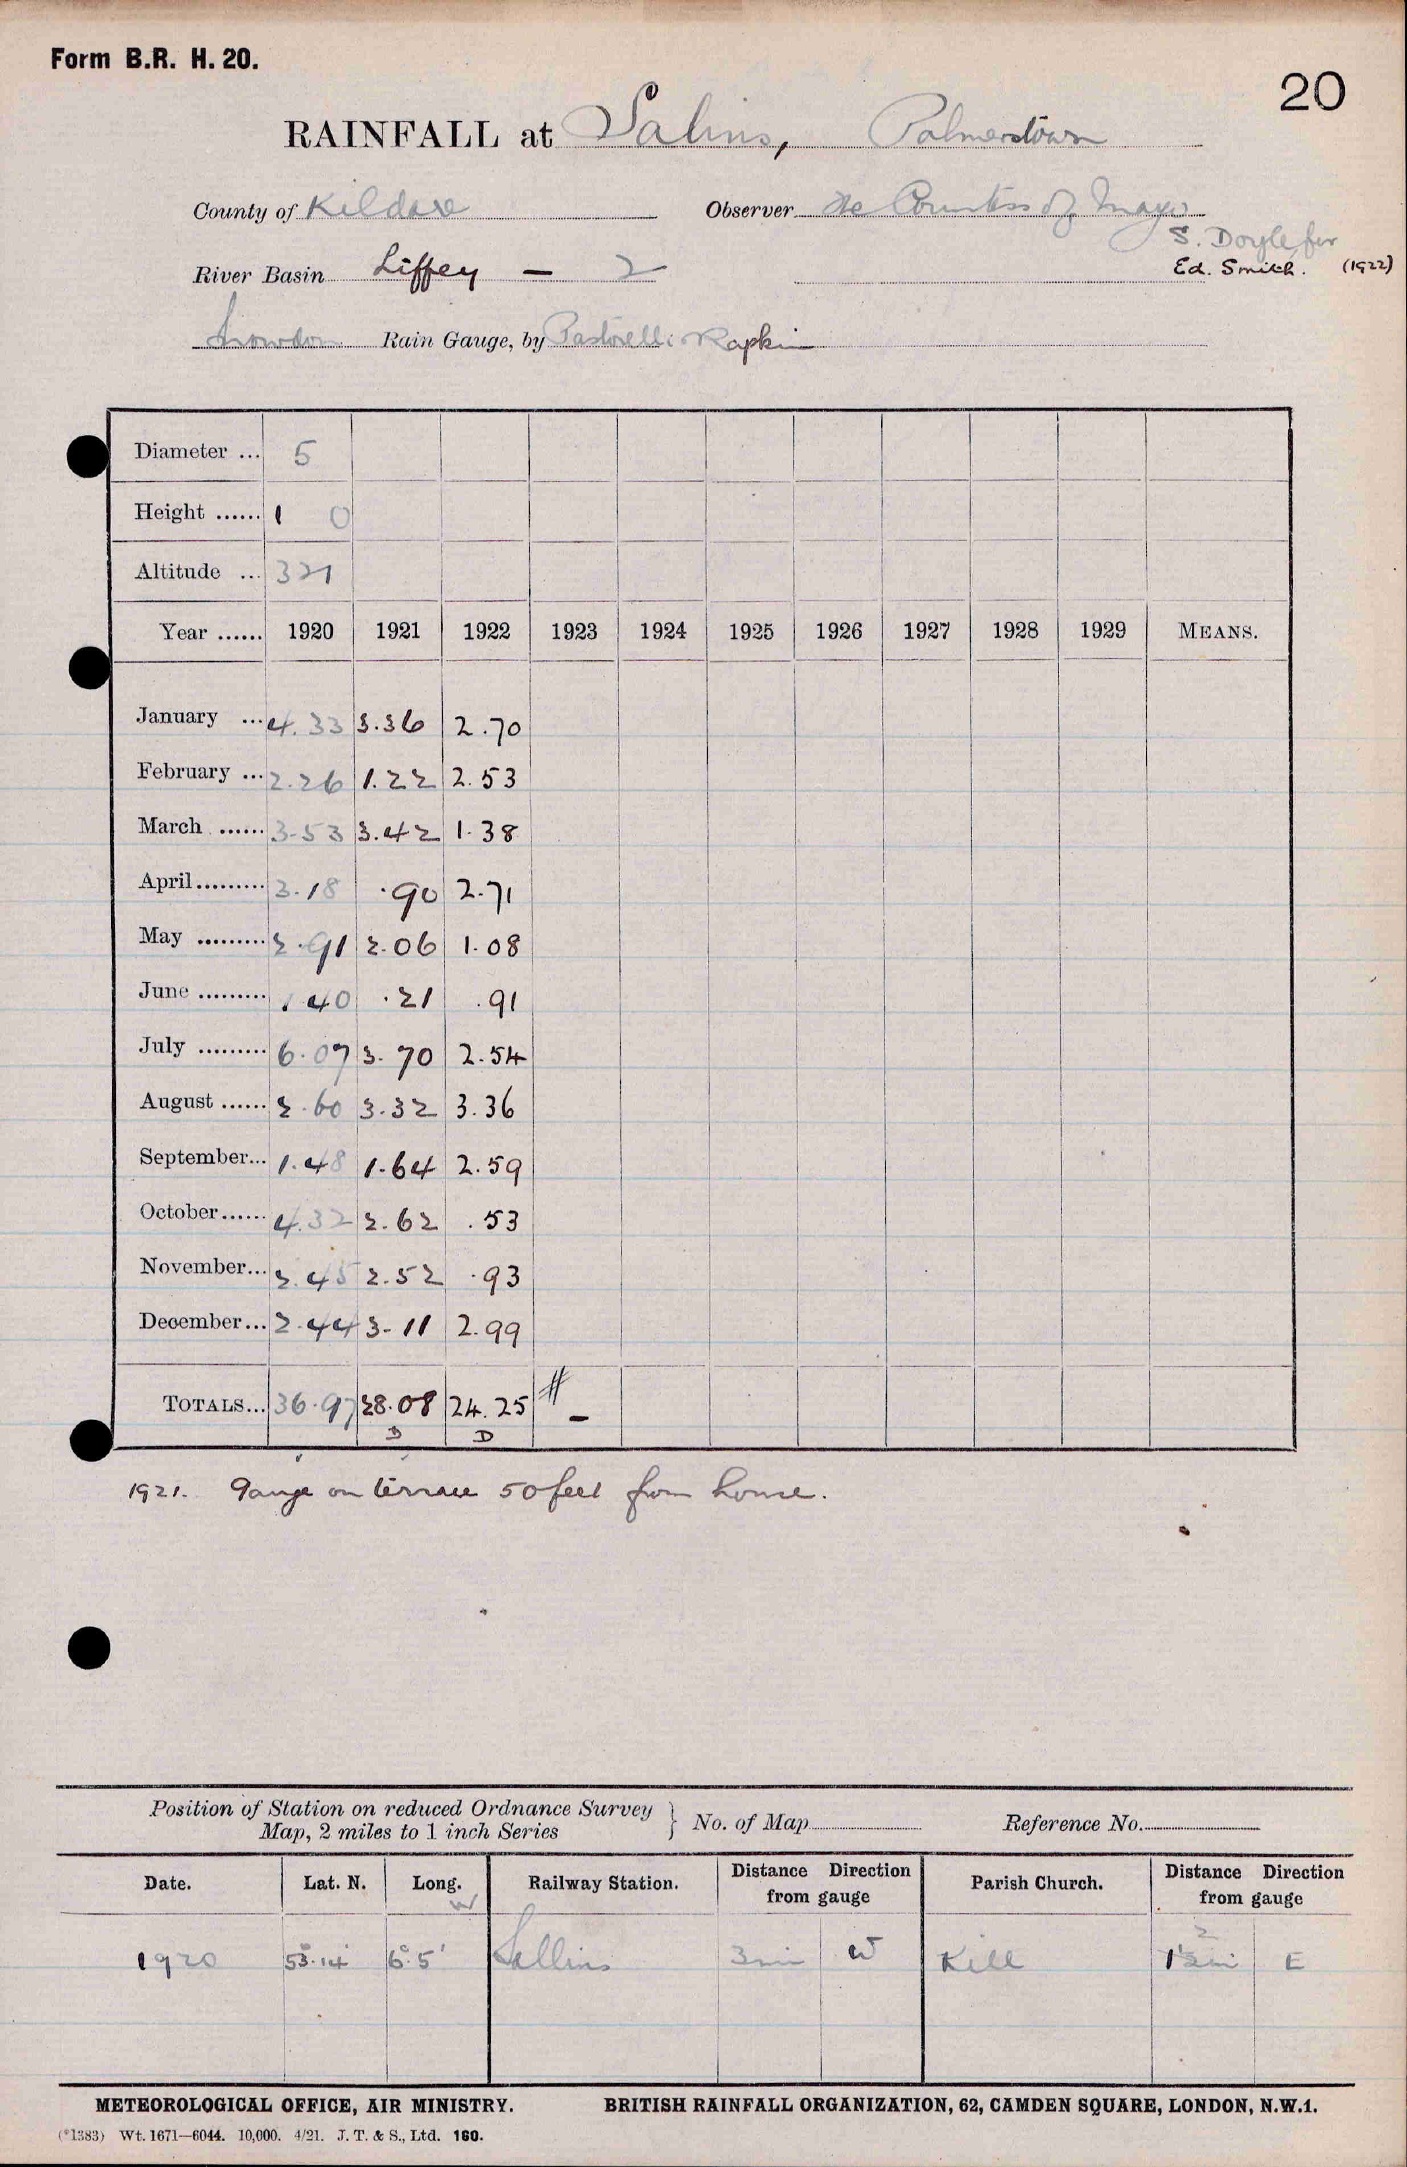 Form B.R. H. 20.
20
RAINFALL at Salins, Palmerstown
County of Kildare Observer The Countess of Mayo
S. Doyle for
River Basin Liffey — 2 Ed. Smith. (1922)
Snowdon Rain Gauge, by Pastorelli & Rapkin
Diameter ... 5
Height ...... 1 0
Altitude ... 321
Year ...... 1920 1921 1922 1923 1924 1925 1926 1927 1928 1929 MEANS.
January ... 4.33 3.36 2.70
February ... 2.26 1.22 2.53
March ...... 3.53 3.42 1.38
April ......... 3.18 .90 2.71
May ......... 2.91 2.06 1.08
June ......... 1.40 .21 .91
July ......... 6.07 3.70 2.54
August ...... 2.60 3.32 3.36
September... 1.48 1.64 2.59
October...... 4.32 2.62 .53
November... 2.45 2.52 .93
December... 2.44 3.11 2.99
TOTALS... 36.97 28.08 24.25 # –
D D
1921. Gauge on terrace 50 feet from house.
Position of Station on reduced Ordnance Survey
Map, 2 miles to 1 inch Series } No. of Map Reference No.
Date. Lat. N. Long. W Railway Station. Distance Direction from gauge Parish Church. Distance Direction from gauge
1920 53°.14' 6°.5' Sallins 3 mi W Kill 1½ mi E
METEOROLOGICAL OFFICE, AIR MINISTRY. BRITISH RAINFALL ORGANIZATION, 62, CAMDEN SQUARE, LONDON, N.W.1.
(*1383) Wt. 1671—6044. 10,000. 4/21. J. T. & S., Ltd. 160.